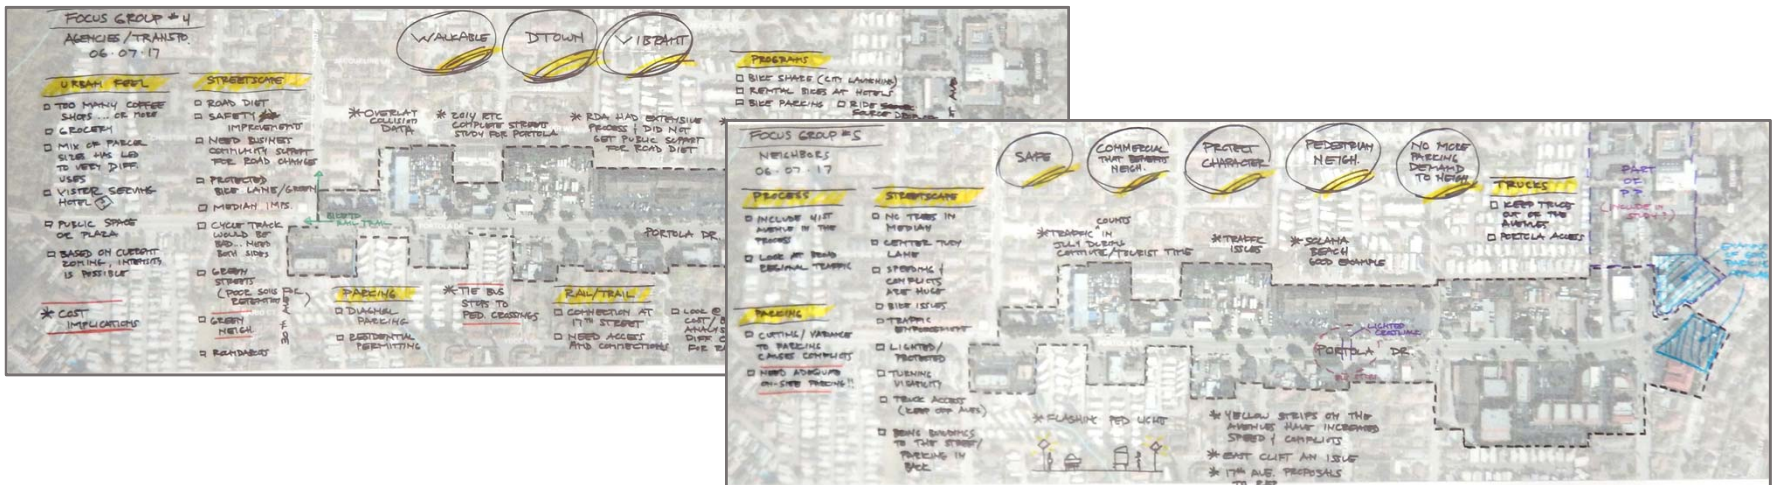 FOCUS GROUP #4
AGENCIES/TRANSPO.
06.07.17
WALKABLE
DTOWN
VIBRANT
URBAN FEEL
TOO MANY COFFEE
SHOPS... OR MORE
GROCERY
MIX OF PARCEL
SIZES HAS LED
TO VERY DIFF.
USES
VISTER SERVING
HOTEL
PUBLIC SPACE
OR PLAZA
BASED ON CURRENT
ZONING, INTENSITY
IS POSSIBLE
* COST
IMPLICATIONS
STREETSCAPE
ROAD DIET
SAFETY
IMPROVEMENTS
NEED BUSINESS
COMMUNITY SUPPORT
FOR ROAD CHANGES
PROTECTED
BIKE LANE/GREEN
MEDIAN IMPS.
CYCLE TRACK
WOULD BE
BAD... NEED
BOTH SIDES
GREEN
STREETS
(POOR SOILS FOR
RETENTION)
GREEN
NEIGH.
ROUNDABOUTS
* OVERLAY
COLLISION
DATA
* 2014 RTC
COMPLETE STREETS
STUDY FOR PORTOLA
* RDA HAD EXTENSIVE
PROCESS & DID NOT
GET PUBLIC SUPPORT
FOR ROAD DIET
PROGRAMS
BIKE SHARE (CITY LAUNCHING)
RENTAL BIKES AT HOTELS
BIKE PARKING
RIDE
RAIL TRAIL
PORTOLA DR
PARKING
DIAGNAL
PARKING
RESIDENTIAL
PERMITTING
* TIE BUS
STOPS TO
PED. CROSSINGS
RAIL/TRAIL
CONNECTION AT
17TH STREET
NEED ACCESS
AND CONNECTIONS
LOOK @
COST/
FOCUS GROUP #5
NEIGHBORS
06.07.17
SAFE
COMMERCIAL
THAT BENEFITS
NEIGH.
PROTECT
CHARACTER
PEDESTRIAN
NEIGH.
NO MORE
PARKING
DEMAND
TO NEIGH.
PROCESS
INCLUDE 41ST
AVENUE IN THE
PROCESS
LOOK AT BROAD
REGIONAL TRAFFIC
PARKING
CUTTING/VARIANCE
TO PARKING
CAUSES CONFLICTS
NEED ADEQUATE
ON-SITE PARKING!!
STREETSCAPE
NO TREES IN
MEDIAN
CENTER TURN
LANE
SPEEDING &
CONFLICTS
ARE HUGE
BIKE ISSUES
TRAFFIC
ENFORCEMENT
LIGHTED/
PROTECTED
TURNING
VISIBILITY
TRUCK ACCESS
(KEEP OFF AVES)
BRING BUILDINGS
TO THE STREET/
PARKING IN
BACK
COUNTS
* TRAFFIC IN
JULY DURING
COMMUTE/TOURIST TIME
* TRAFFIC
ISSUES
* SOLANA
BEACH
GOOD EXAMPLE
TRUCKS
KEEP TRUCKS
OUT OF THE
AVENUES
PORTOLA ACCESS
PART
OF
(INCLUDE IN
STUDY?)
LIGHTED
CROSSWALK
PORTOLA DR.
* FLASHING PED LIGHT
* YELLOW STRIPS ON THE
AVENUES HAVE INCREASED
SPEED & CONFLICTS
* EAST CLIFF AN ISSUE
* 17TH AVE. PROPOSALS